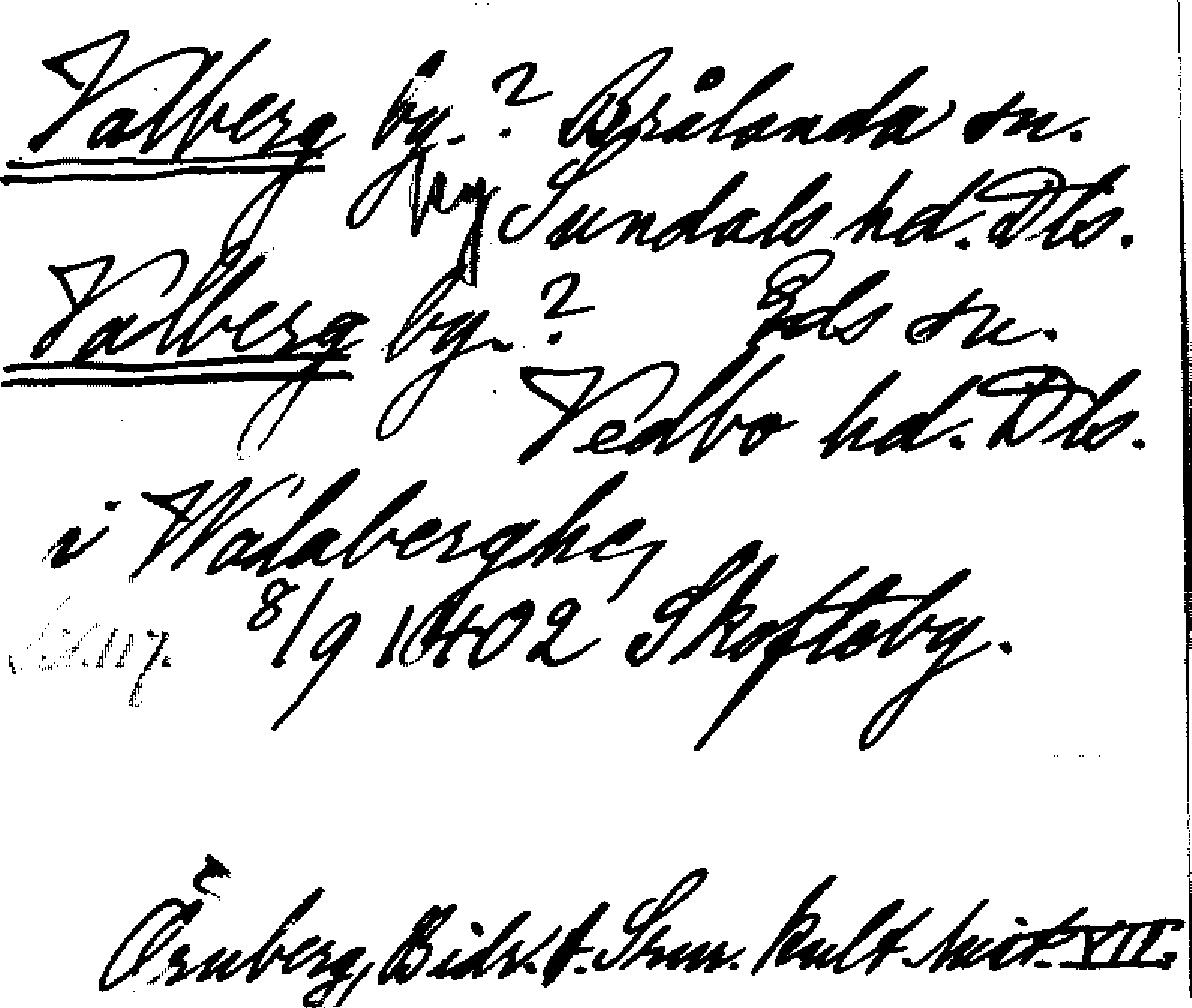 Valberg by.? Brålanda sn.
ny Sundals hd. Dls.
Valberg by.? Eds sn.
Vedbo hd. Dls.
i Walaberghe,
8/9 1402 Skoftoby.
Örnberg, Bidr. t. Skm. kult. hist. VII.